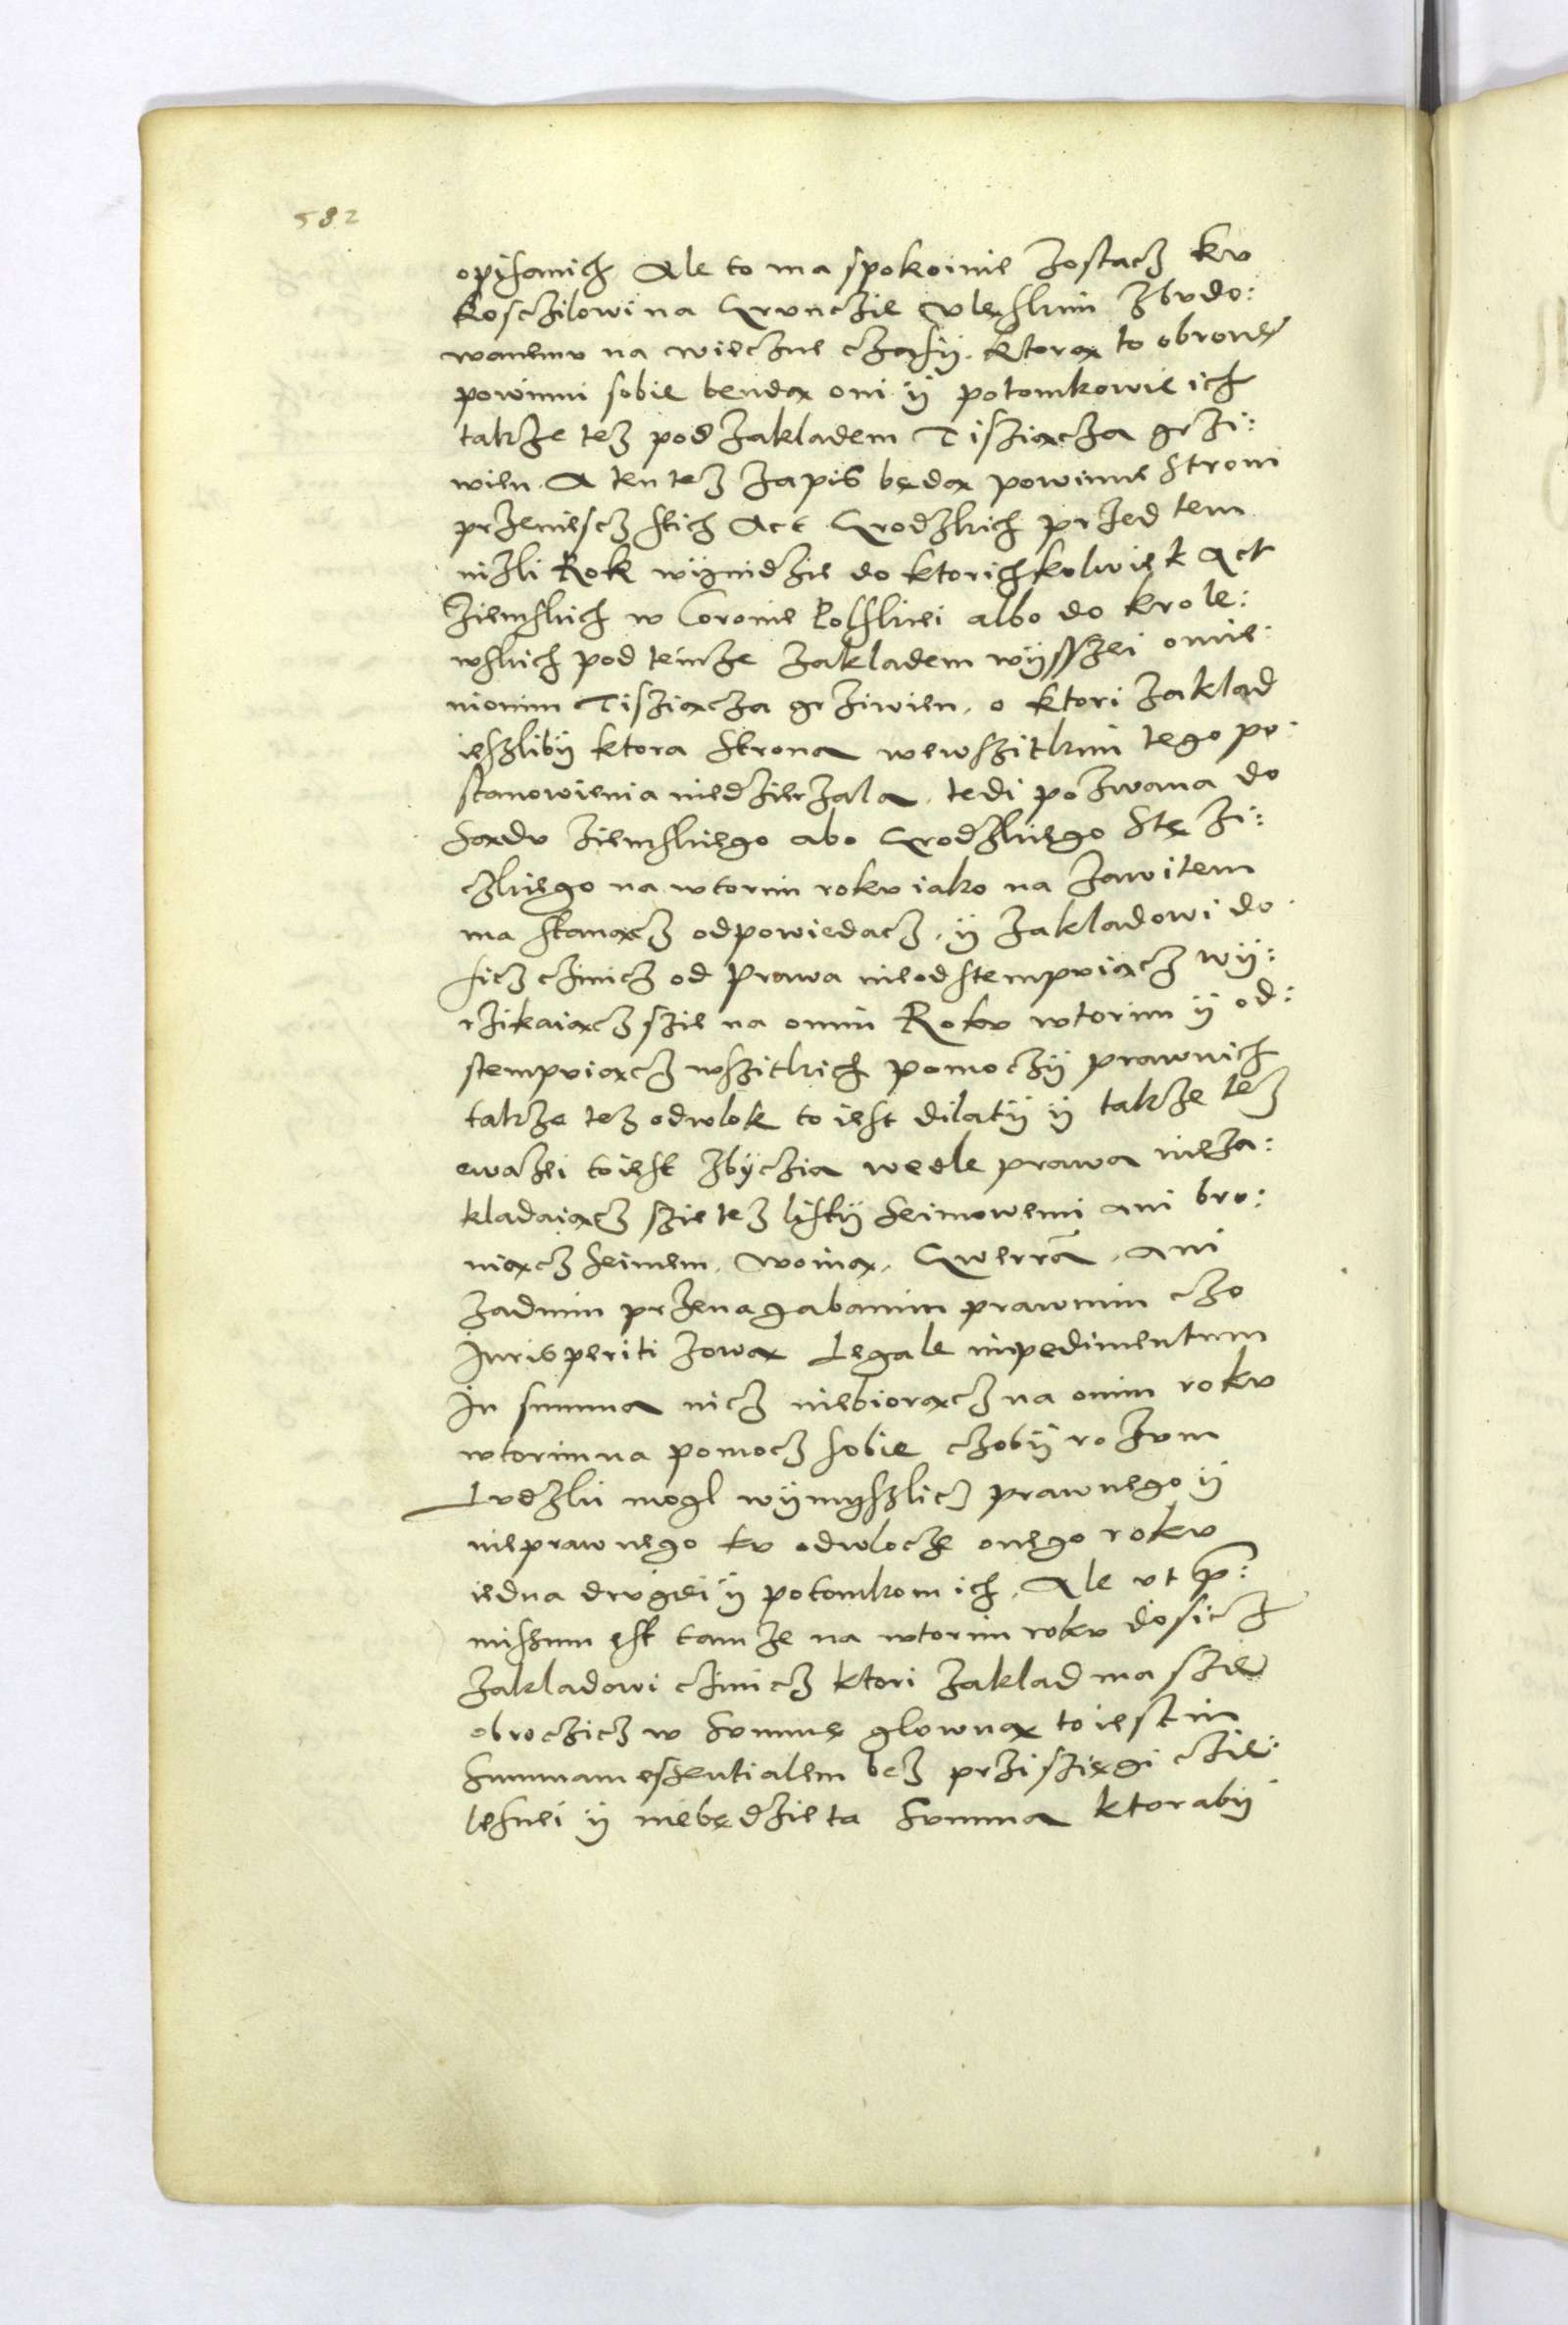 582
opisanich Ale to ma spokoinie zostacz ku
kosczilowi na Grunczie Ulęskim zbudo:
wanemu na wieczne czasÿ. ktorą to obronę
powinni sobie bendą oni ÿ potomkowie ich
takze tez pod zakladem Tisziącza grzi:
wien. A ten tez zapis będą powinne stroni
przeniescz stich Act Grodzkich przed tem
nizli Rok wÿnidzie do ktorichkolwiek Act
ziemskich w Coronie Polskiei albo do krole:
wskich pod teimze zakladem wÿsszei omie:
nionim Tisziącza grziwien. o ktori zaklad
ieszlibÿ ktora strona wewszitkim tego po:
stanowienia niedzierzala. tedi pozwana do
sądu ziemskiego abo Grodzkiego Stęzi:
czkiego na wtorim roku iako na zawitem
ma stanącz odpowiedacz. ÿ zakladowi do:
sicz czinicz od prawa nieodstempuiącz wÿ:
rzikaiącz szie na onim Roku wtorim ÿ od:
stempuiącz wszitkich pomoczÿ prawnich
takze tez odwlok to iest dilatÿ ÿ takze tez
ewazei to iest zbÿczia wedle prawa nieza:
kladaiącz szie tez listÿ seimowemi ani bro:
niącz seimem. woiną. Gwerrą. ani
zadnim przenagabanim prawnim czo
Jurisperiti zową Legale impedimentum
In summa nicz niebiorącz na onim roku
wtorim na pomocz sobie czobÿ rozum
Ludzki mogl wÿmyszlicz prawnego ÿ
nieprawnego ku odwlocze onego roku
iedna drugiei ÿ potomkom ich. Ale ut p:
missum est tamze na wtorim roku dosicz
zakladowi czinicz ktori zaklad ma szie
obroczicz w summę glowną to iest in
summam essentialem bez prziszięgi czie:
lesnei ÿ niebędzie ta summa ktorabÿ